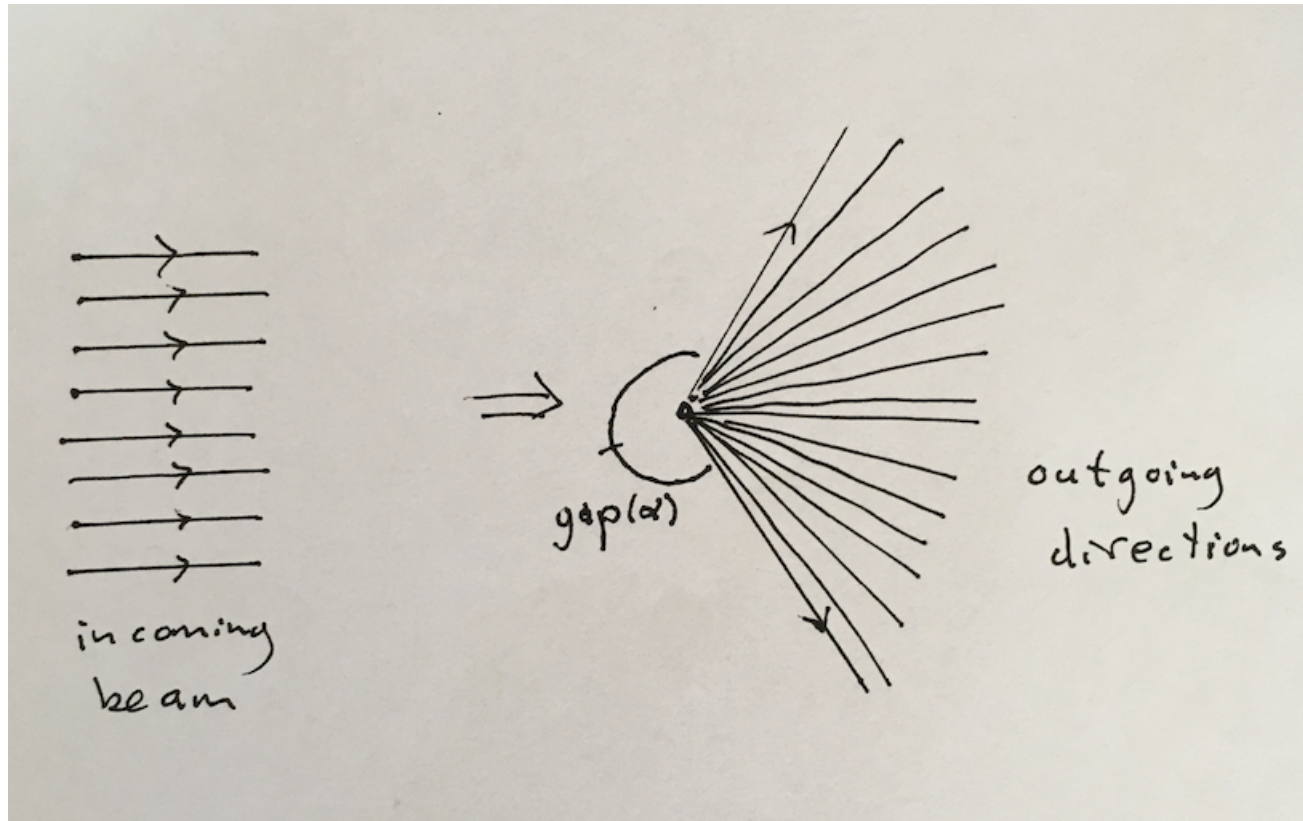 incoming
beam
gap(α)
outgoing
directions